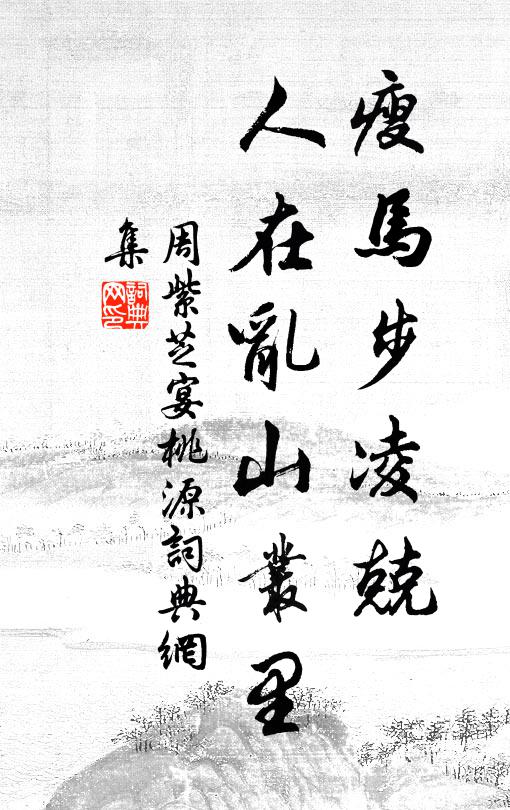 瘦馬步凌兢
人在亂山叢里
周紫芝宴桃源詞典網
集
詞典
网印